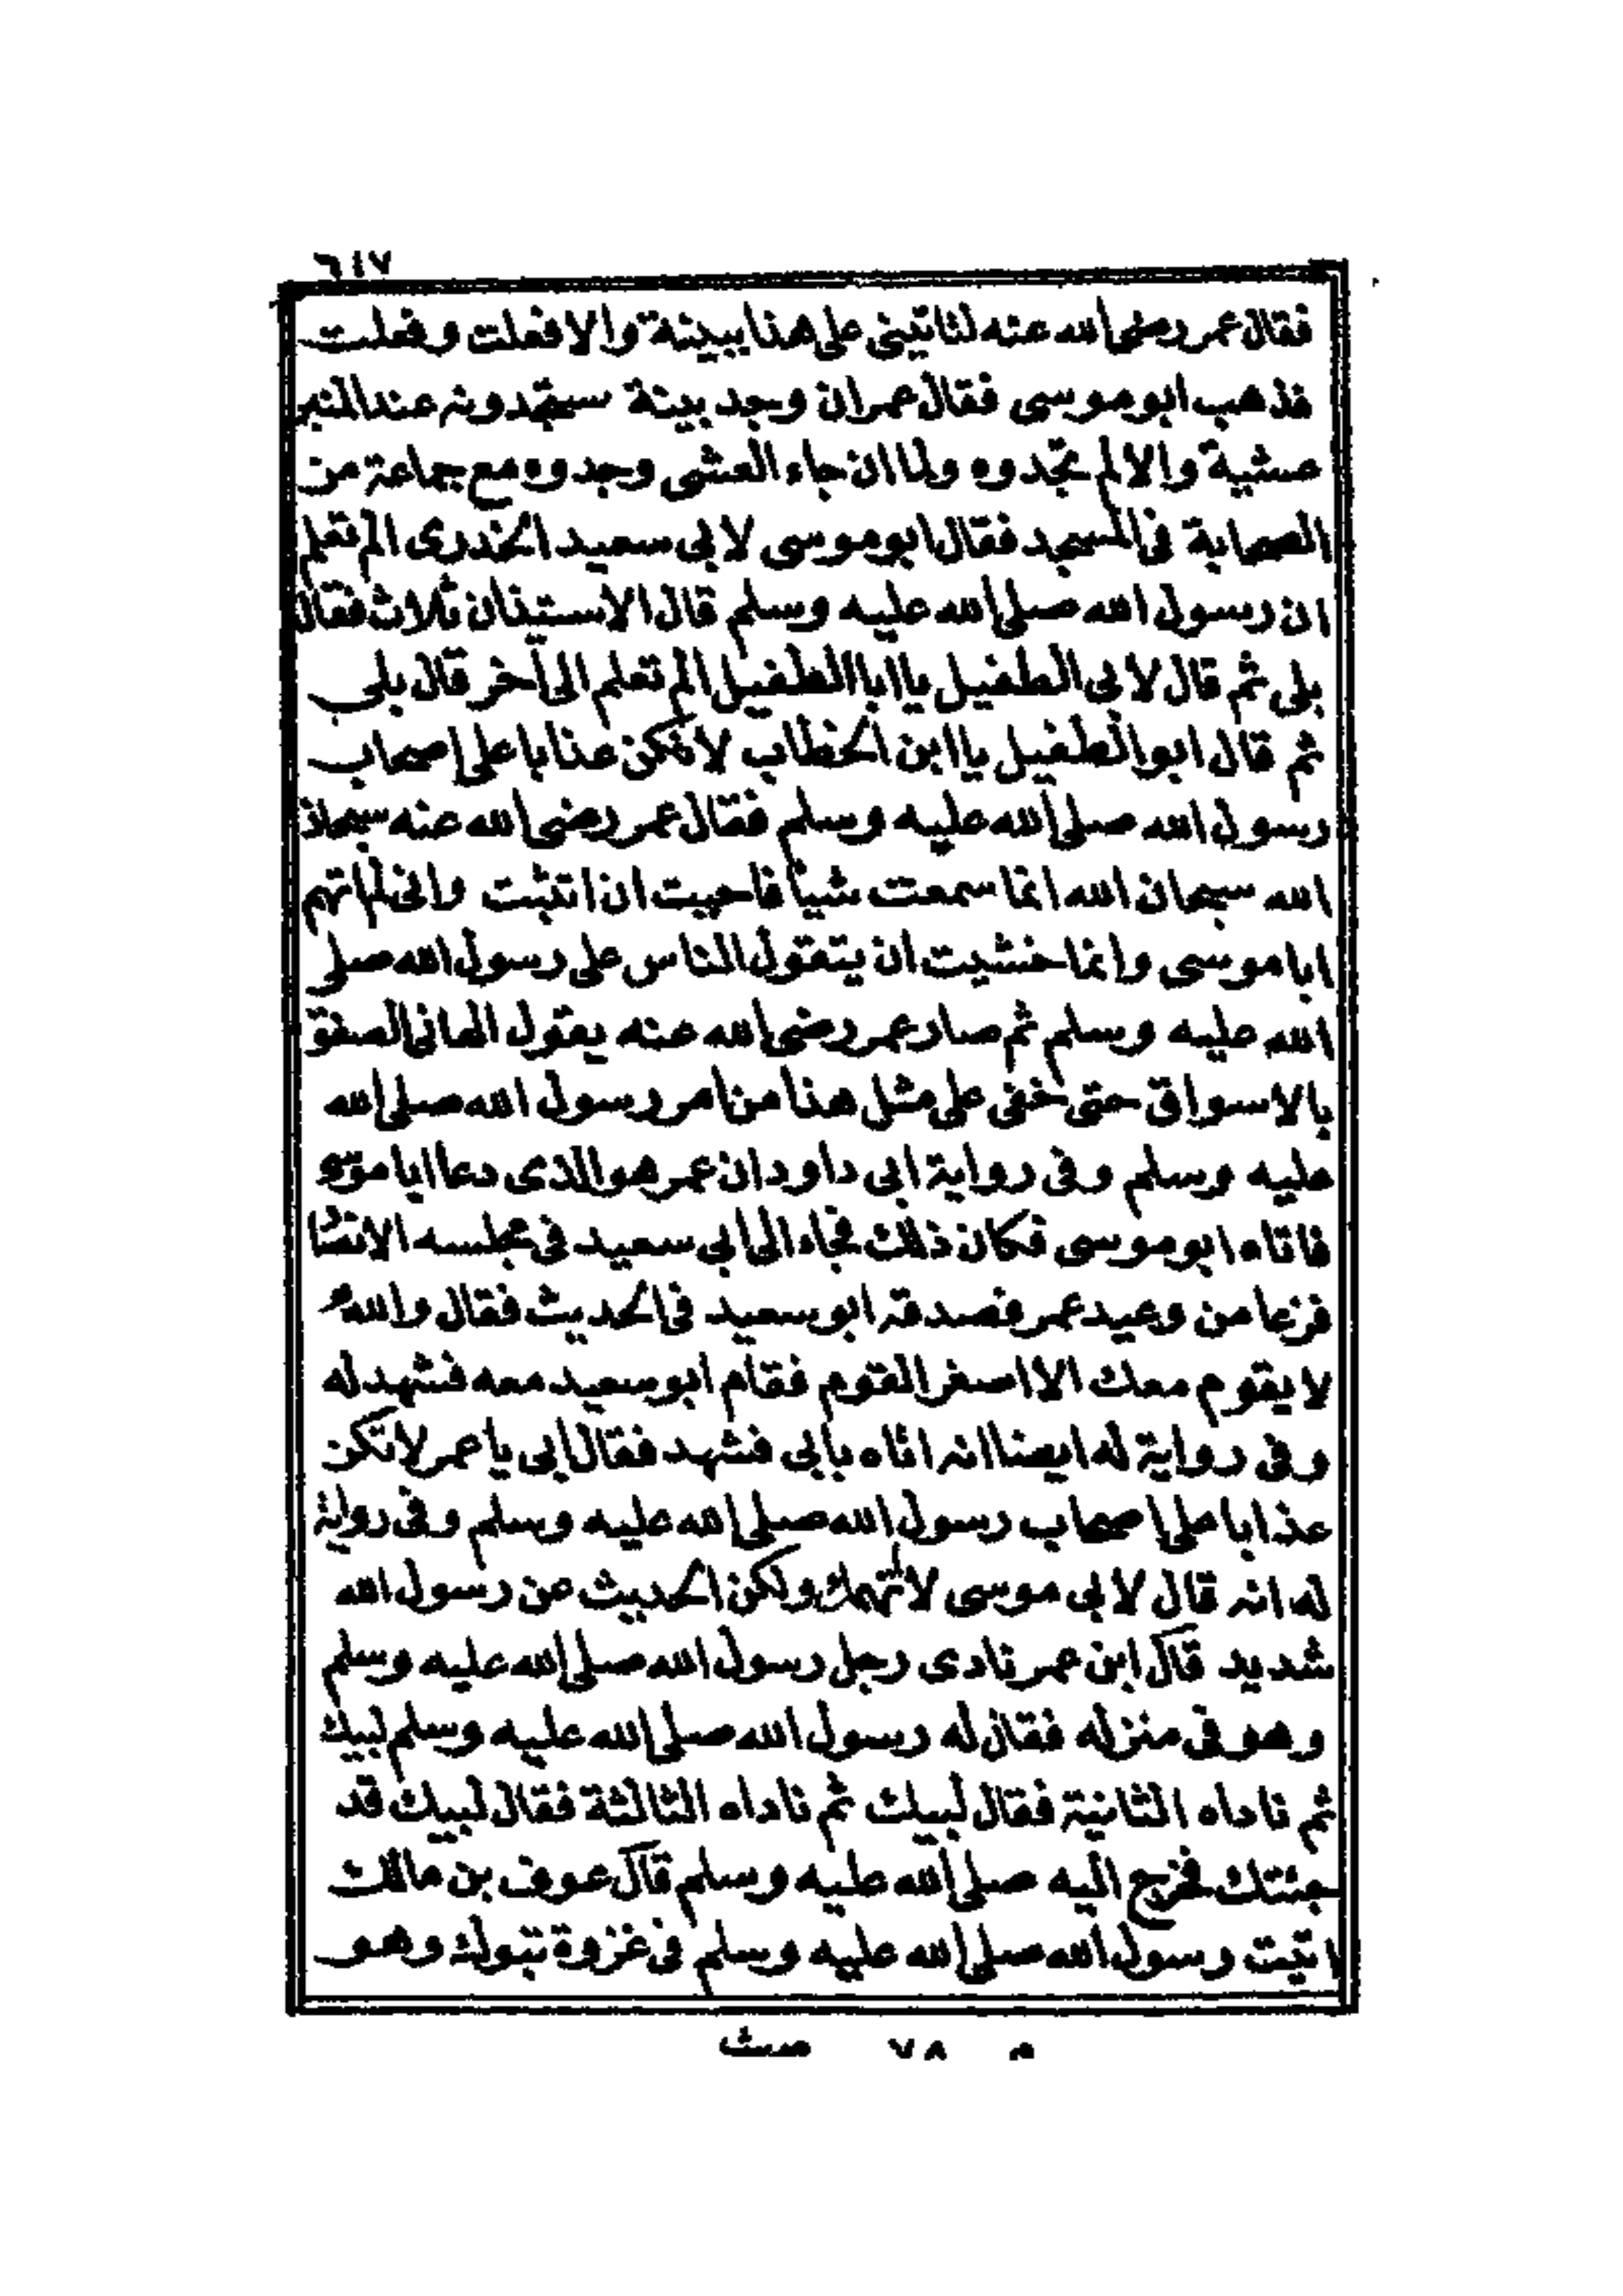 ٦١٧
فقال عمر رضى الله عنه لتاتينى على هذا ببينة والا فعلت وفعلت
فذهب ابو موسى فقال عمر ان وجد بينة ستجدونه عند المنبر
عشية والا لم تجدوه ولما ان جاء العشى وجدوه مع جماعة من
الصحابة فى المسجد فقال ابو موسى لابى سعيد الخدرى الم تعلم
ان رسول الله صلى الله عليه وسلم قال الاستيذان ثلاث فقال
بلى ثم قال لابى الطفيل يا ابا الطفيل الم تعلم الى آخر قال بلى
ثم قال ابو الطفيل يا ابن الخطاب لا تكن عذابا على اصحاب
رسول الله صلى الله عليه وسلم فقال عمر رضى الله عنه سبحان
الله سبحان الله انما سمعت شيأ فاحببت ان اتثبت وانى لم اتهم
ابا موسى وانما خشيت ان يتقول الناس على رسول الله صلى
الله عليه وسلم ثم صار عمر رضى الله عنه يقول الهانى الصفق
بالاسواق حتى خفى على مثل هذا من امر رسول الله صلى الله
عليه وسلم وفى رواية ابى داود ان عمر هو الذى دعا ابا موسى
فاتاه ابو موسى فكان ذلك فجاء الى ابى سعيد فى مجلسه الانصا
فزعا من وعيد عمر فصدقه ابو سعيد فى الحديث فقال والله
لا يقوم معك الا اصغر القوم فقام ابو سعيد معه فشهد له
وفى رواية له ايضا انه اتاه بابى فشهد فقال ابى يا عمر لا تكن
عذابا على اصحاب رسول الله صلى الله عليه وسلم وفى رواية
له انه قال لابى موسى لا تهمك ولكن الحديث عن رسول الله
شديد قال ابن عمر نادى رجل رسول الله صلى الله عليه وسلم
وهو فى منزله فقال له رسول الله صلى الله عليه وسلم لبيك
ثم ناداه الثانية فقال لبيك ثم ناداه الثالثة فقال لبيك قد
جئتك فخرج اليه صلى الله عليه وسلم قال عوف بن مالك
اتيت رسول الله صلى الله عليه وسلم فى غزوة تبوك وهو
م ٧٨